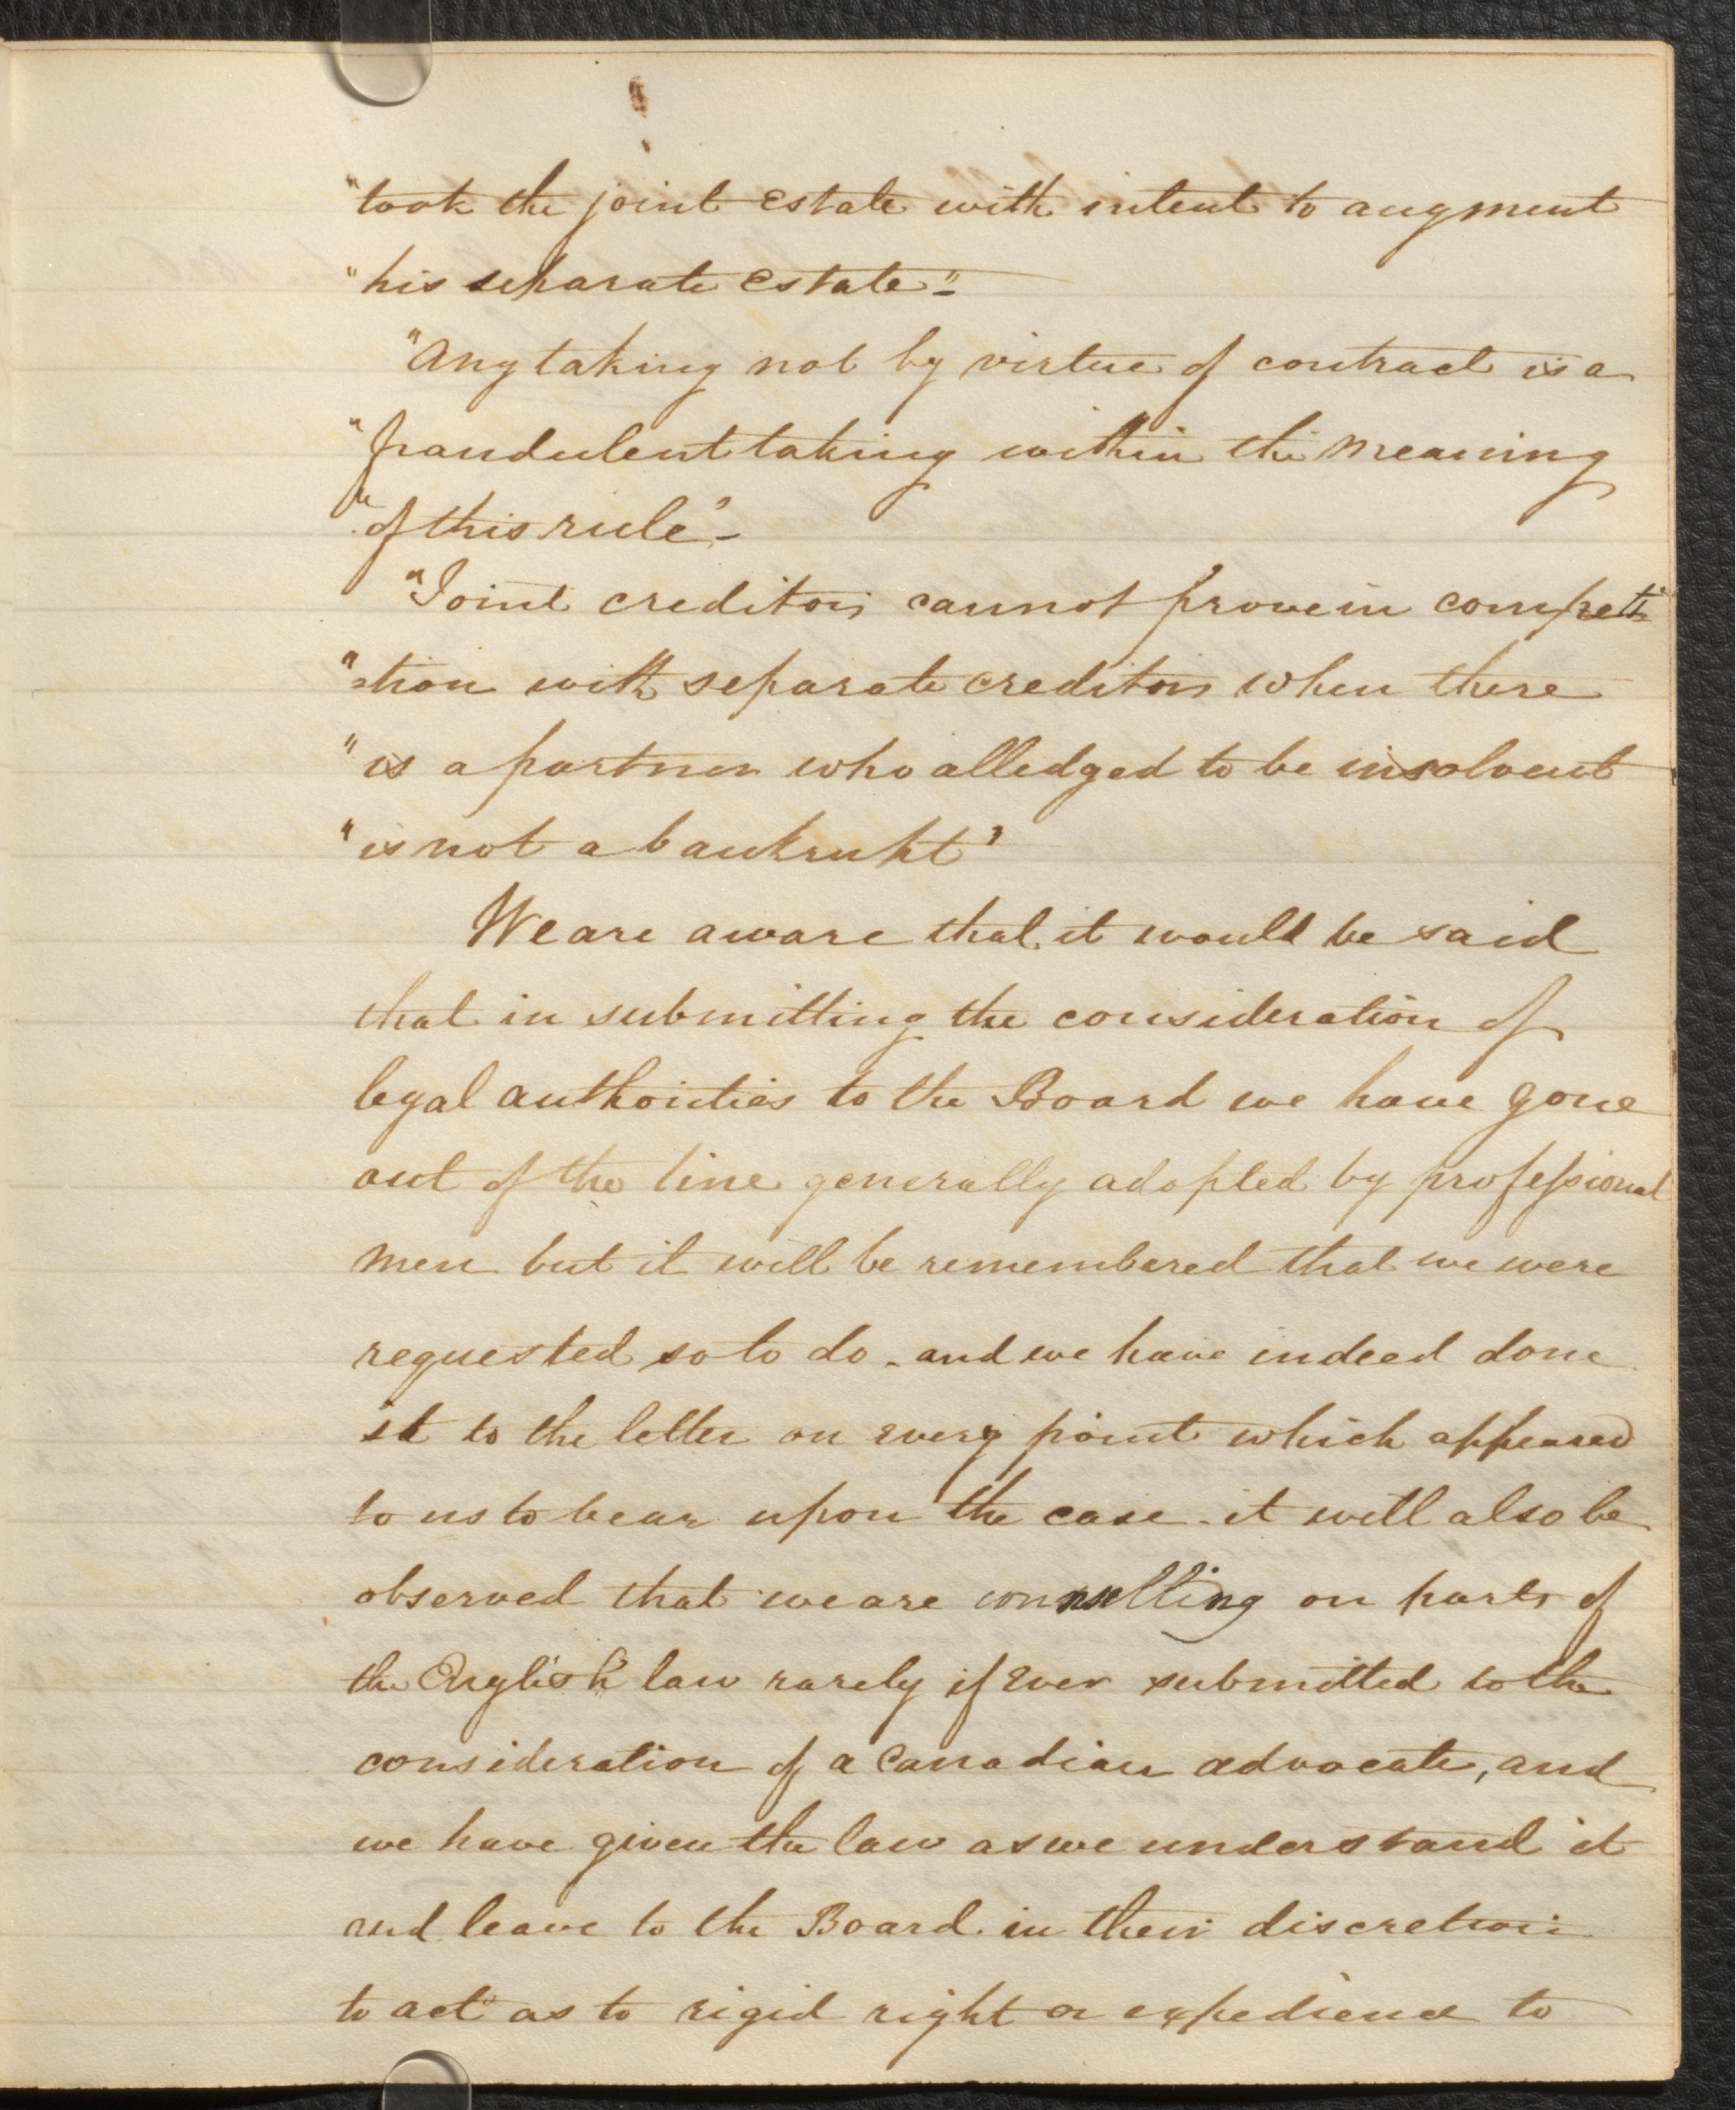 "took the joint estate with intent to augment
"his separate estate"-
"Any taking not by virtue of contract is a
"fraudulent taking within the meaning
"of this rule"-
"Joint creditors cannot prove in competi
"=tion with separate creditors when there
"is a partner who alledged to be insolvent
"is not a bankrupt"
We are aware that it would be said
that in submitting the consideration of
legal authorities to the Board we have gone
out of the line generally adopted by professional
men but it will be remembered that we were
requested so to do - and we have indeed done
it to the letter on every point which appeared
to us to bear upon the case - it will also be
observed that we are counselling on parts of
the English law rarely if ever submitted to the
consideration of a Canadian advocate, and
we have given the law as we understand it
and leave to the Board in their discretion
to act as to rigid right or expedience to